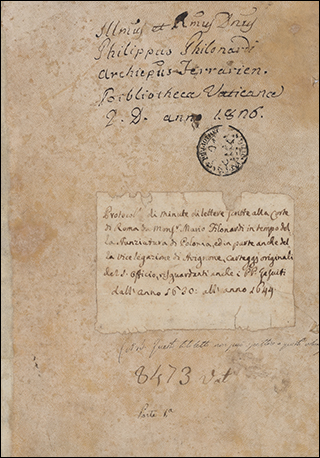 Illmus et Rmus Dnus
Philippus Philonardi
Archiepus Ferrarien.
Bibliotheca Vaticana
D. D. anno 1826.
Protocol di minute di lettere scritte alla Corte
di Roma da Monsr. Mario Filonardi in tempo del
la Nunziatura di Polonia, ed in parte anche del
la Vice legazione di Avignone, carteggi originali
del S. Officio, risguardanti anche i PP. Gesuiti
dall' anno 1620: all' anno 1644.
8473 Vat
Parte 1a